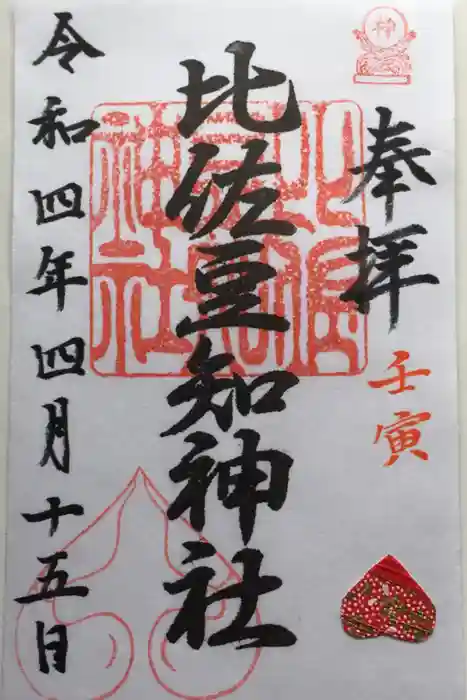 奉拝
壬寅
比佐豆知神社
令和四年四月十五日
神